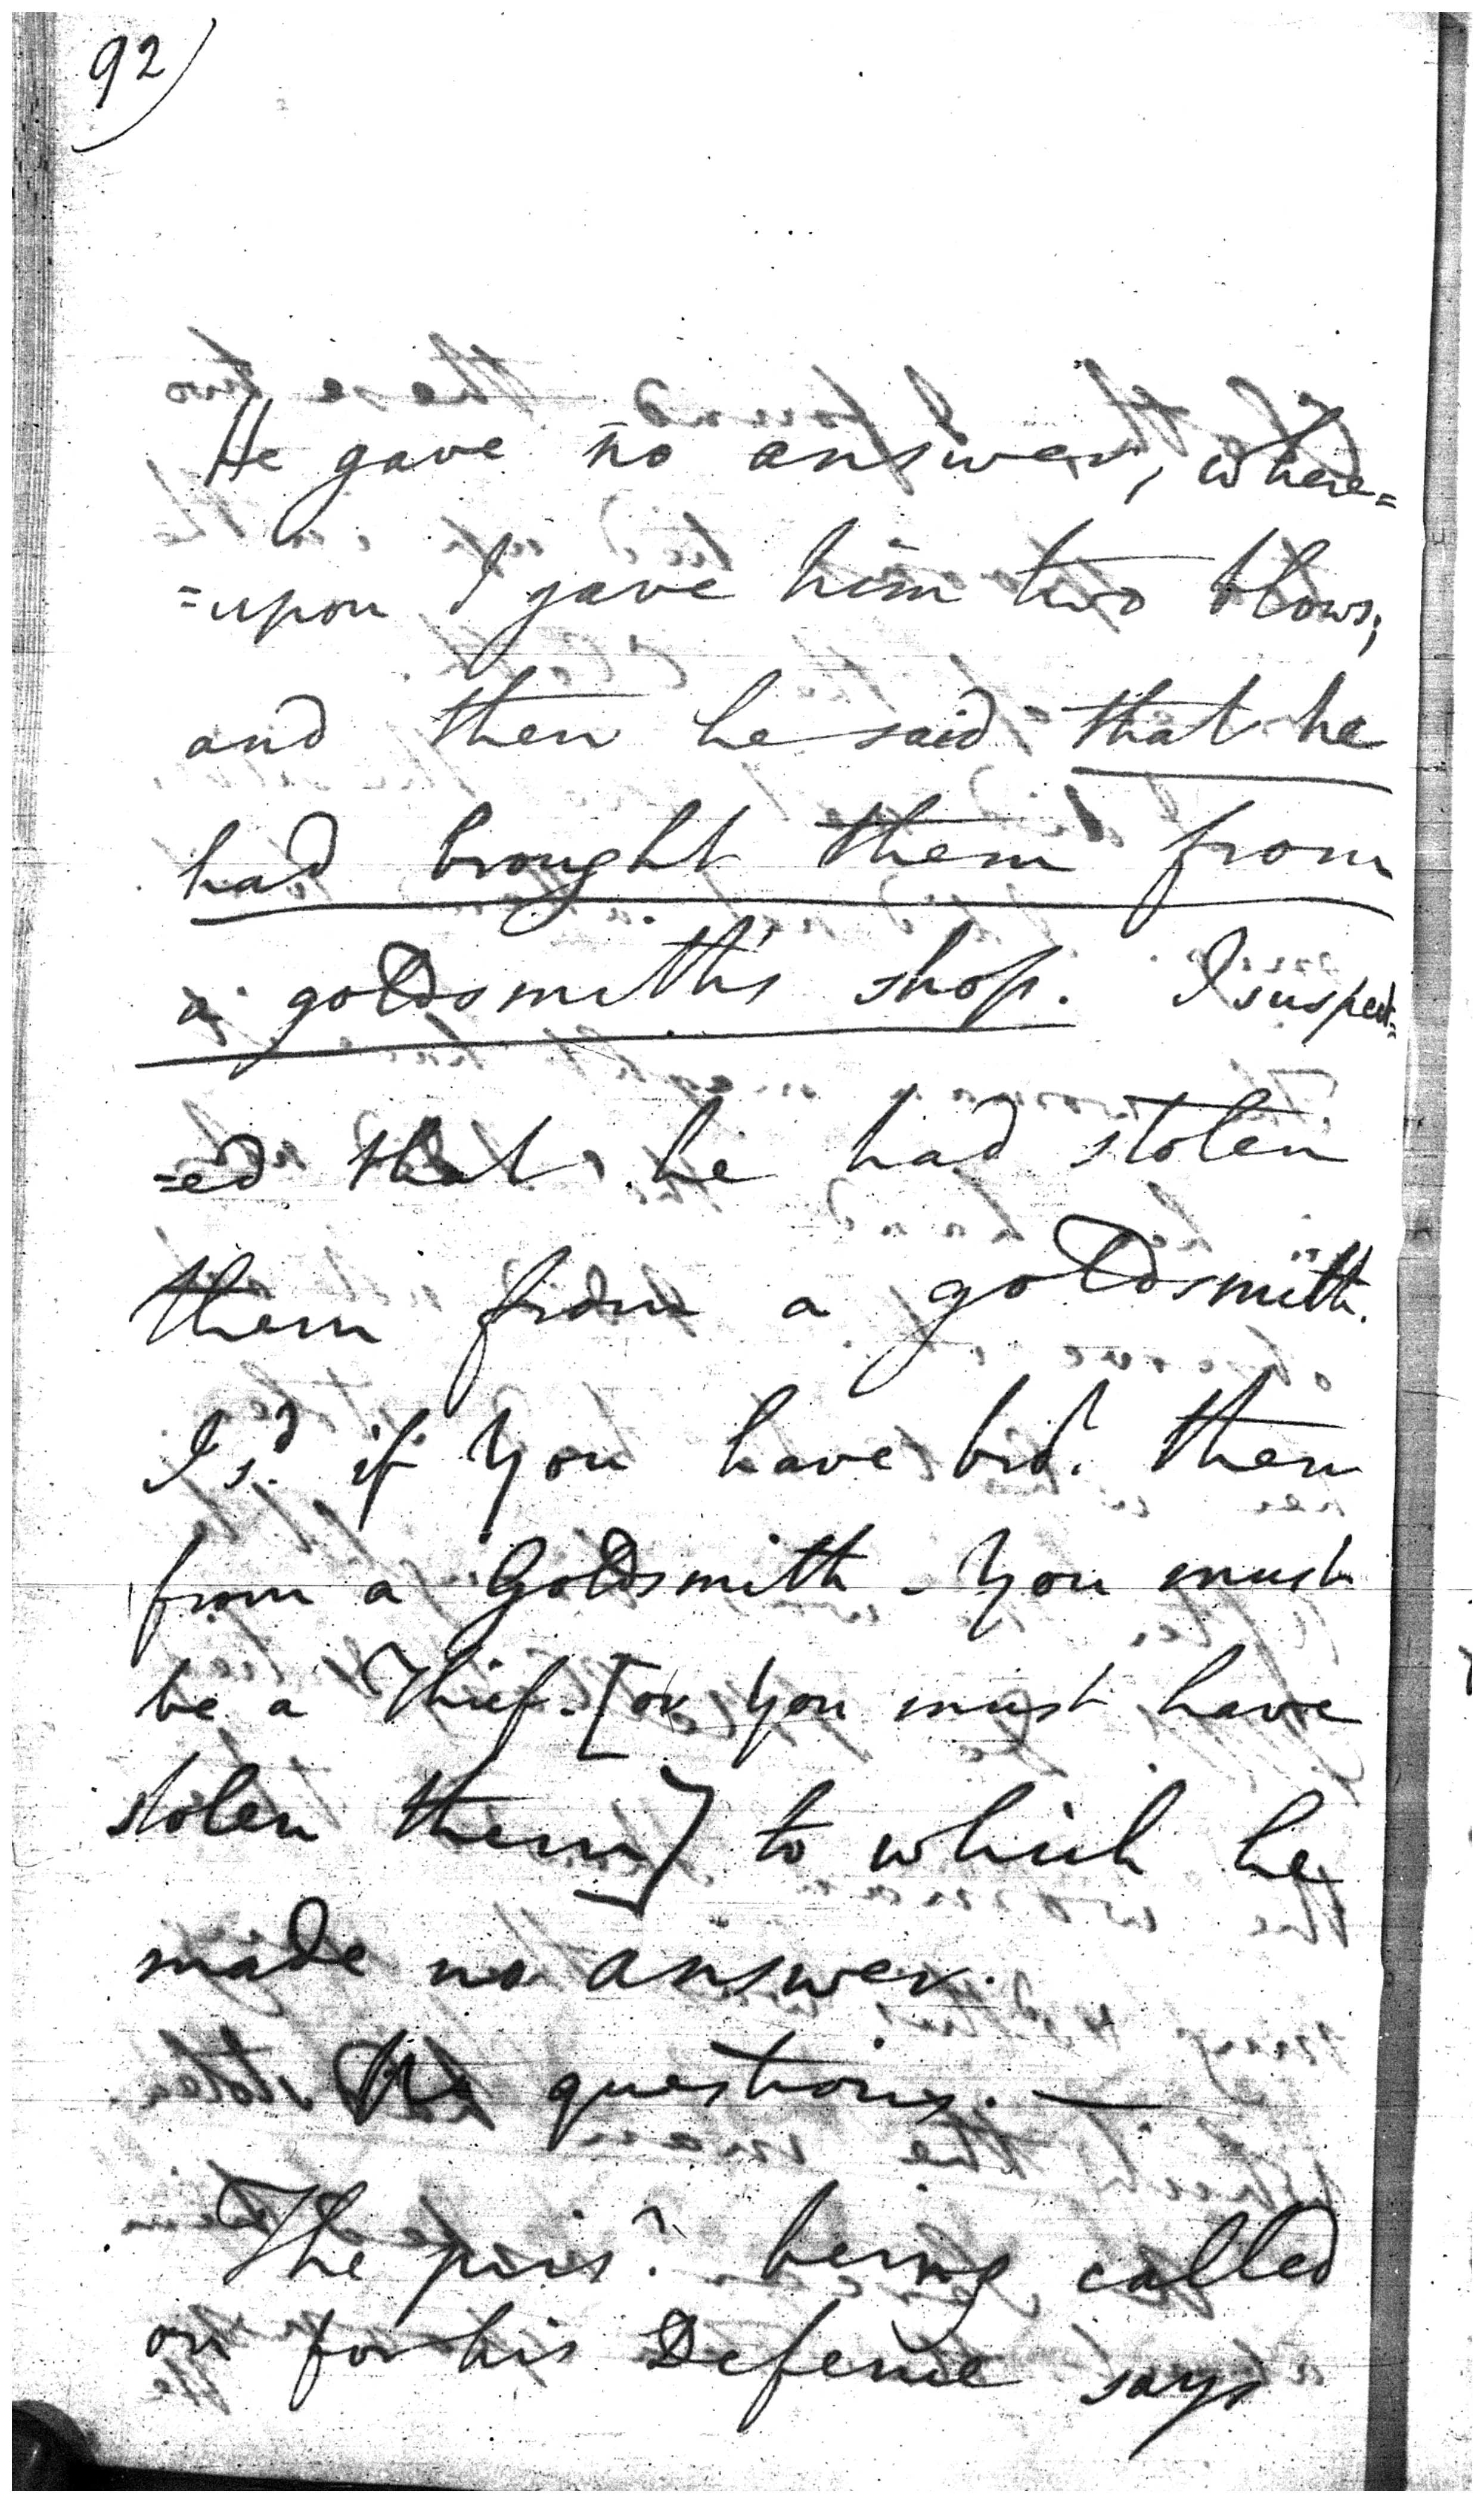 92)
He gave no answer, where=
=upon I gave him two blows;
and then he said that he
had brought them from
a goldsmith's shop. I suspect=
=ed that he had stolen
them from a goldsmith.
I s^d. if you have bro^t. them
from a Goldsmith - you must
be a Thief. [or you must have
stolen them] to which he
made no answer.
No questions. —
The pris^r. being called
on for his Defence says